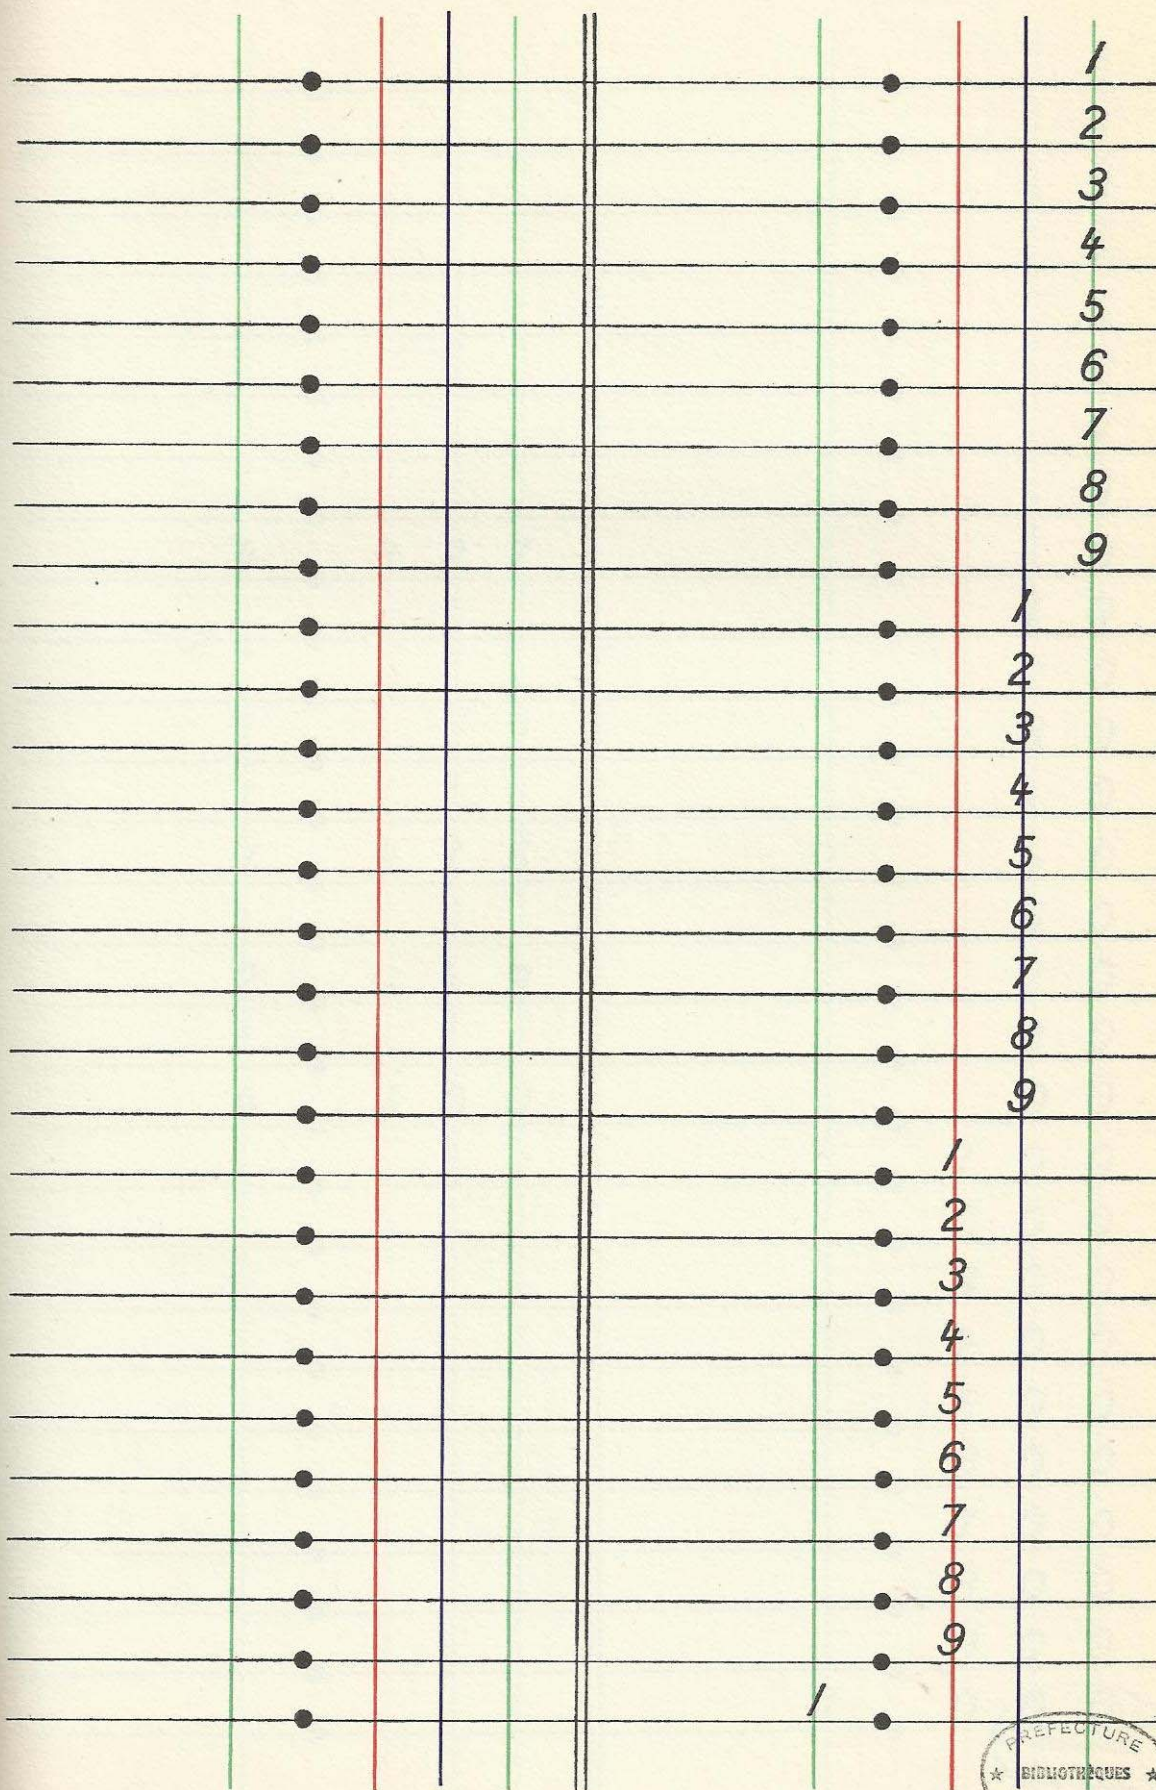 1
2
3
4
5
6
7
8
9
1
2
3
4
5
6
7
8
9
1
2
3
4
5
6
7
8
9
1
PREFECTURE
★ BIBLIOTHÈQUES ★